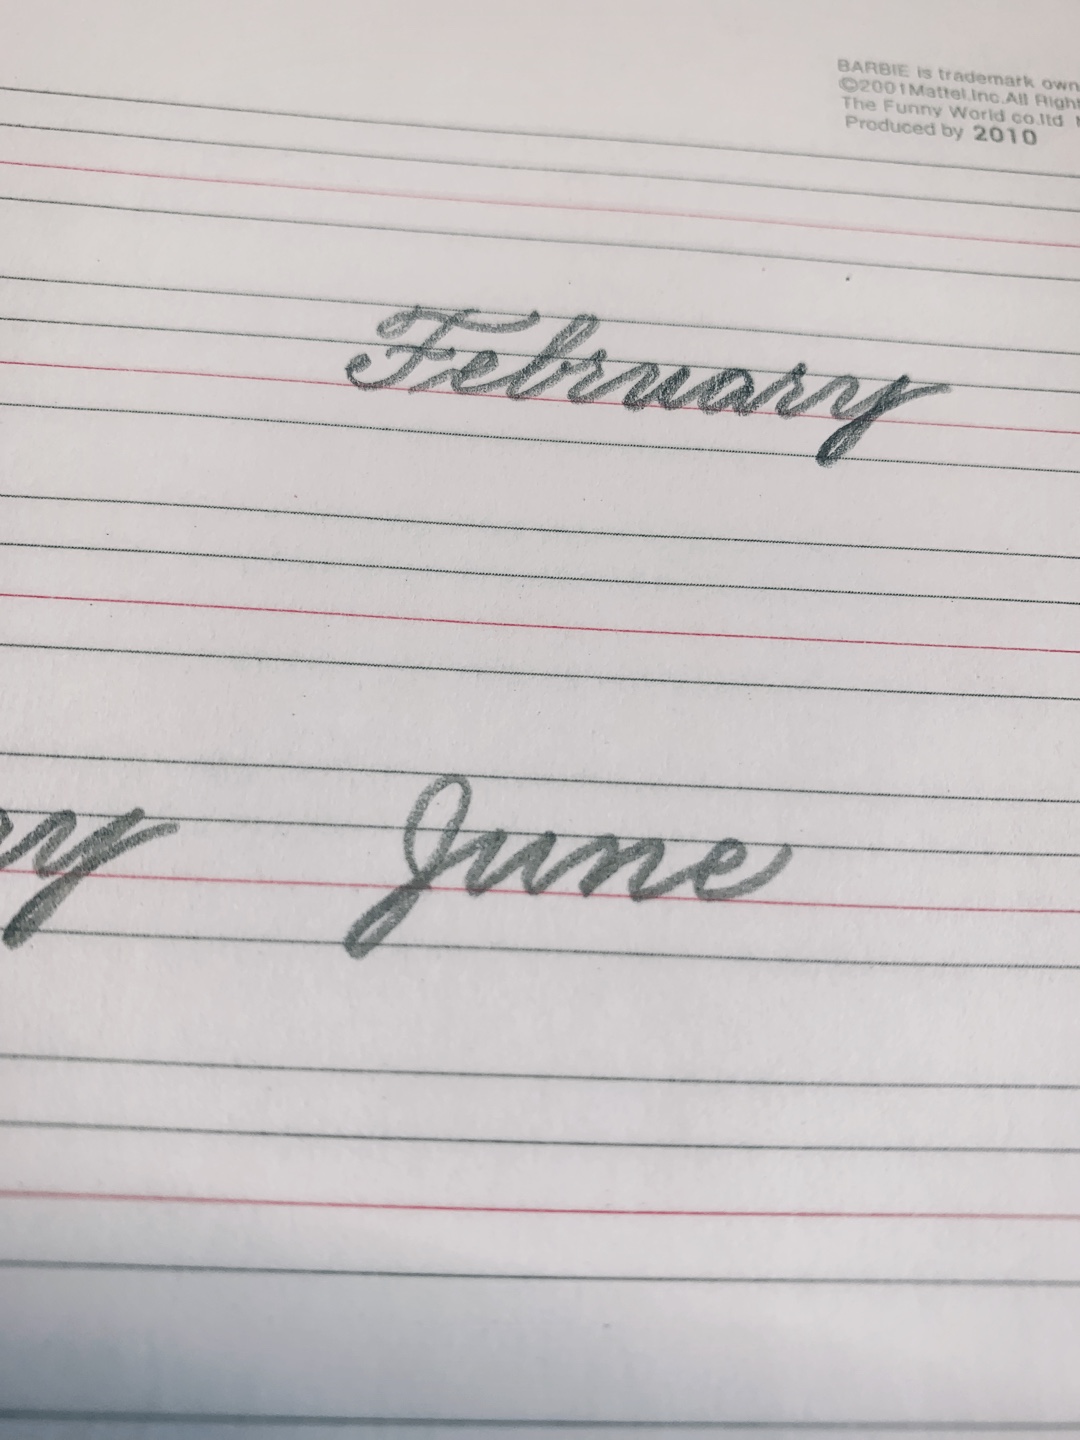 BARBIE is trademark own
©2001Mattel,Inc.All Right
The Funny World co.ltd
Produced by 2010
February
ry June